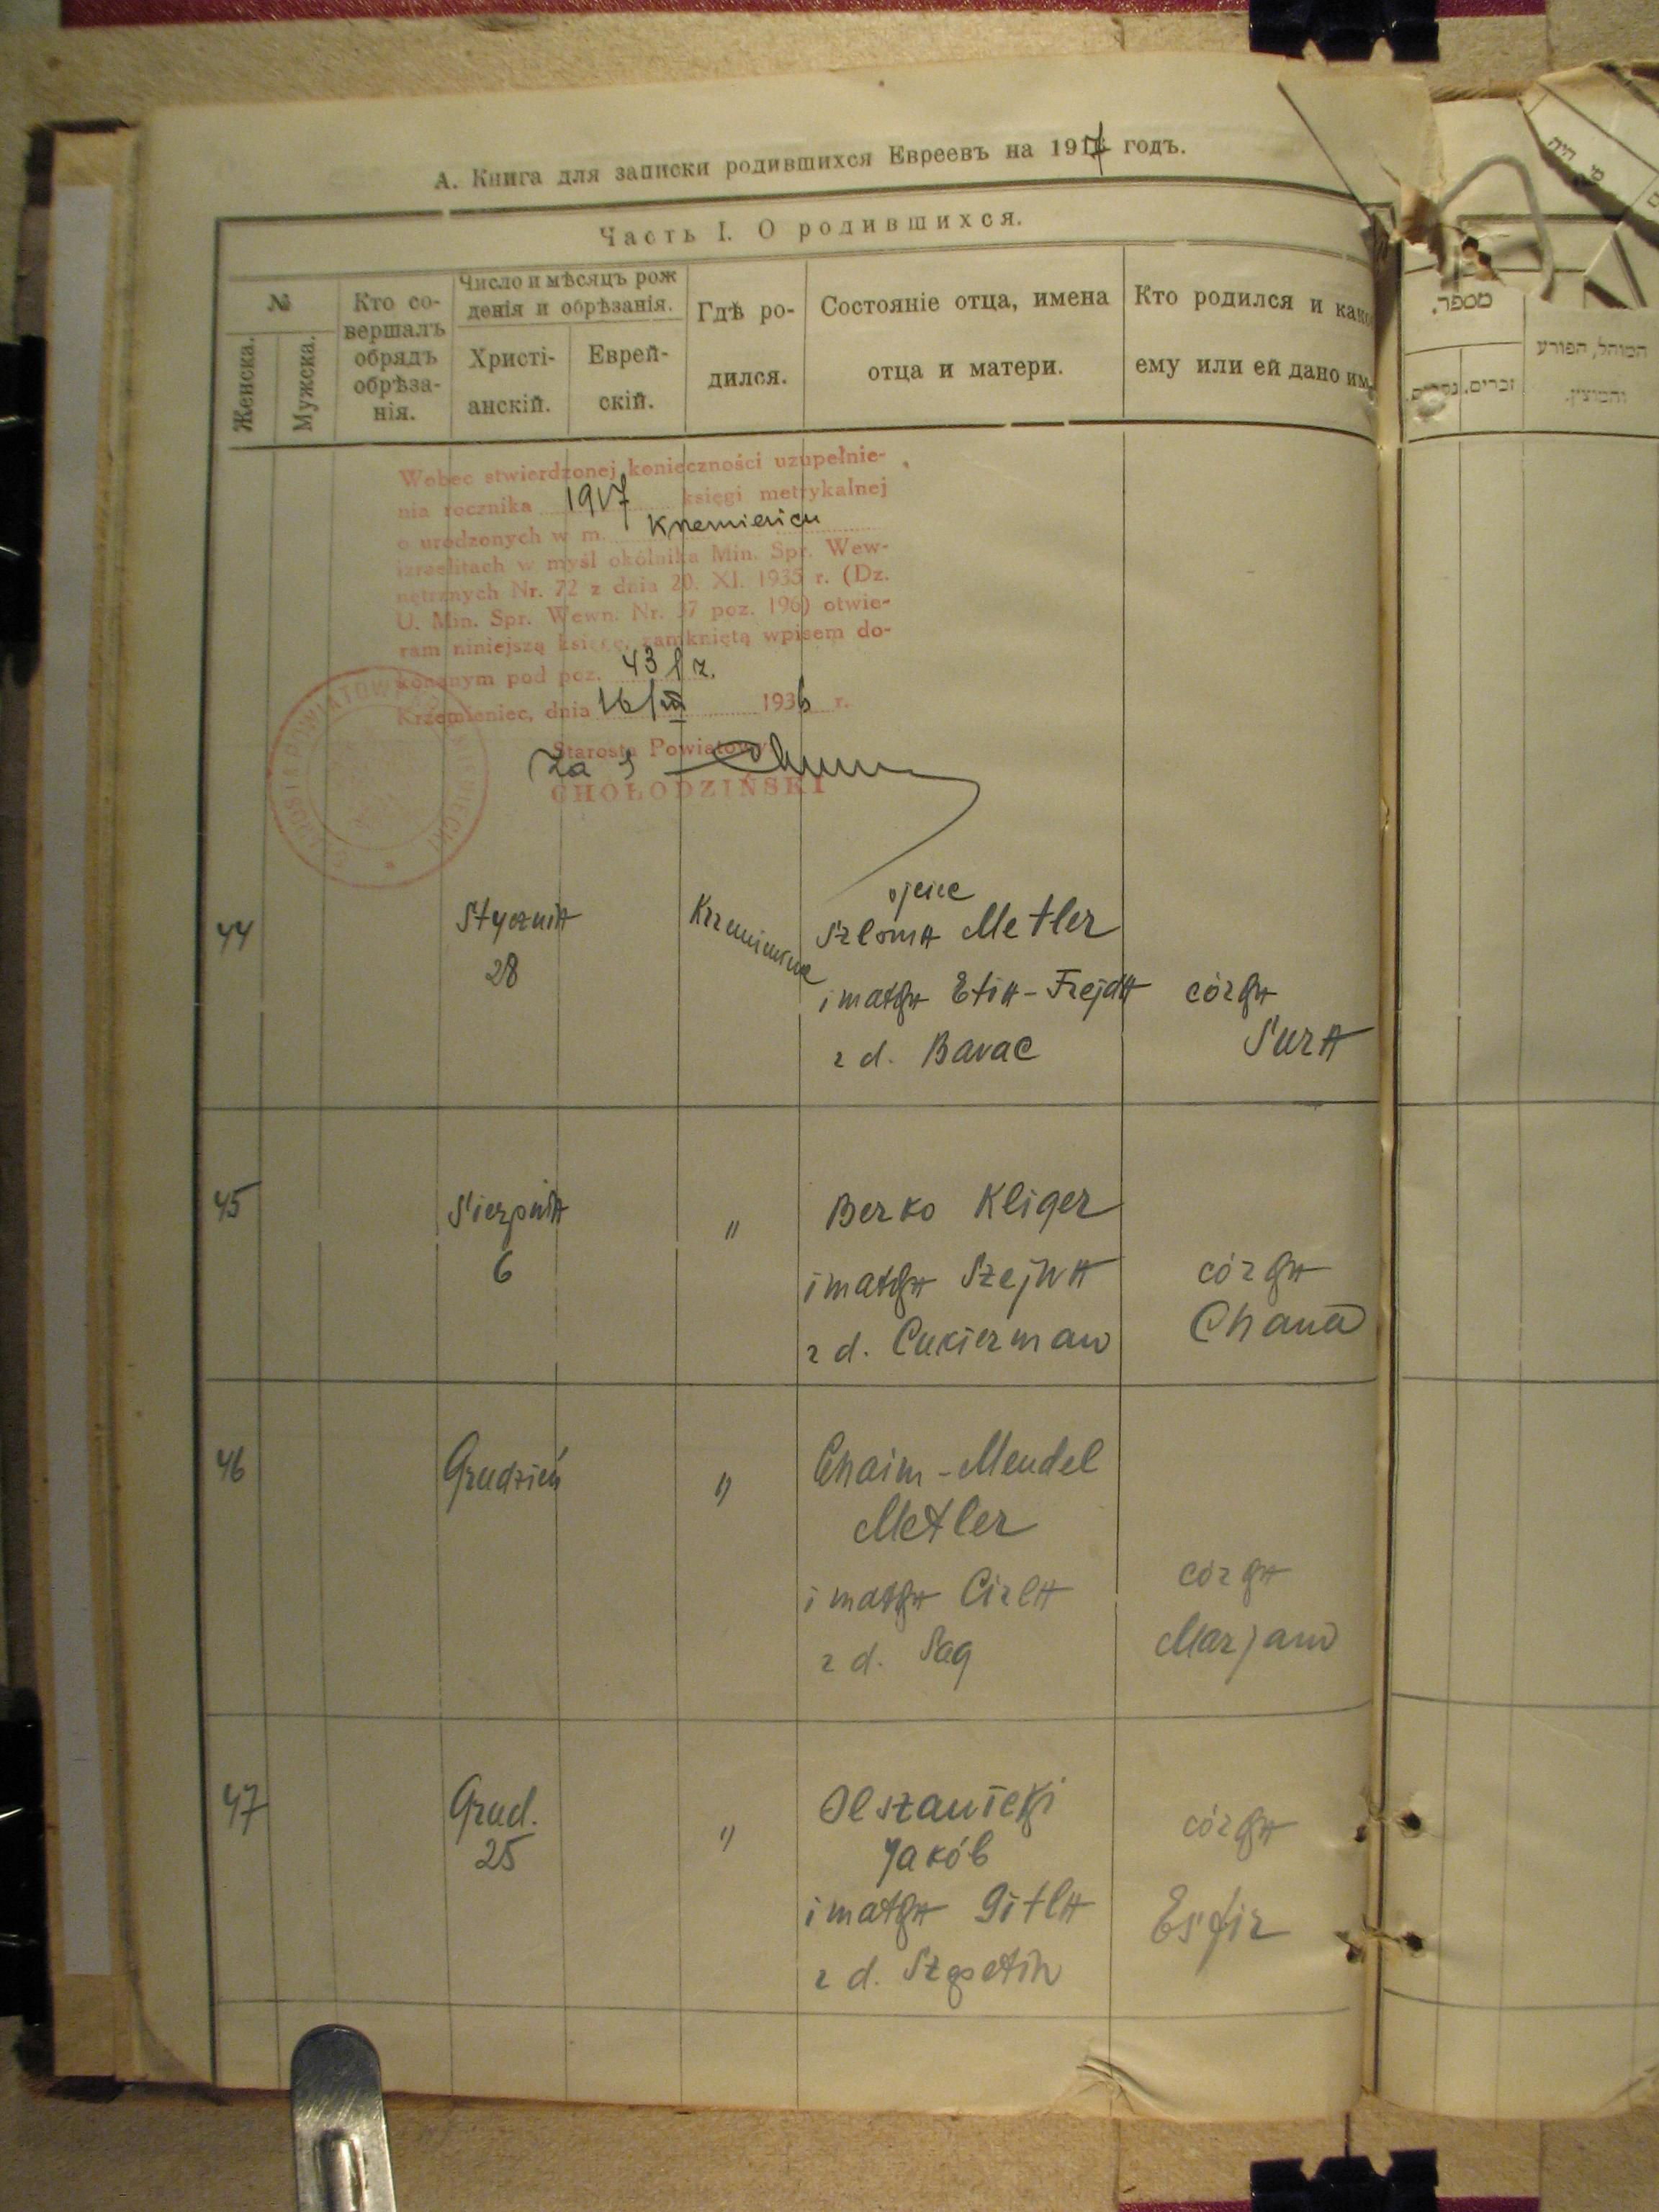 А. Книга для записки родившихся Евреевъ на 1917 годъ.
Часть I. О родившихся.
№
Женска.
Мужска.
Кто со-
вершалъ
обрядъ
обрѣза-
нія.
Число и мѣсяцъ рож
денія и обрѣзанія.
Христі-
анскій.
Еврей-
скій.
Гдѣ ро-
дился.
Состояніе отца, имена
отца и матери.
Кто родился и како
ему или ей дано им
מספר.
זכרים.
המוהל, הפורע
והמוצץ.
Wobec stwierdzonej konieczności uzupełnie-
nia rocznika 1917 księgi metrykalnej
o urodzonych w m. Krzemieńcu
izraelitach w myśl okólnika Min. Spr. Wew-
nętrznych Nr. 72 z dnia 20. XI. 1935 r. (Dz.
U. Min. Spr. Wewn. Nr. 37 poz. 196) otwie-
ram niniejszą księgę, zamkniętą wpisem do-
konanym pod poz. 43 ż.
Krzemieniec, dnia 16/XII 1936 r.
Starosta Powiatowy
Za
CHOŁODZIŃSKI
44
Stycznia
28
Krzemieniec
ojciec
Szloma Metler
i matka Etia-Frejda
z d. Barac
córka
Sura
45
Sierpnia
6
"
Berko Kliger
i matka Szejwa
z d. Cukierman
córka
Chana
46
Grudzień
"
Chaim-Mendel
Metler
i matka Cirla
z d. Sag
córka
Marjam
47
Grud.
25
"
Olszanicki
Jakób
i matka Gitla
z d.
córka
Esfir